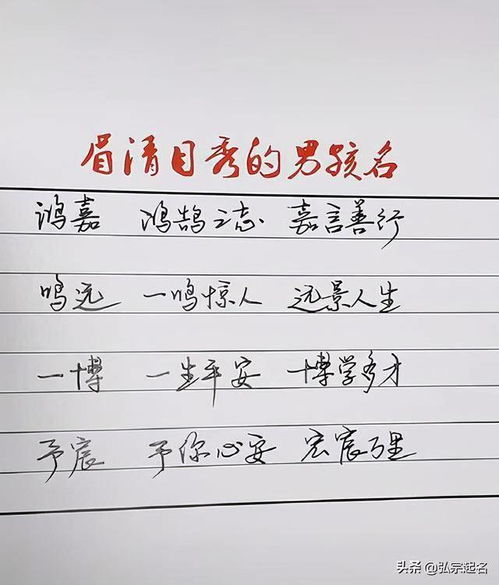 眉清目秀的男孩名
鸿嘉 鸿鹄之志 嘉言善行
鸣远 一鸣惊人 远景人生
一博 一生平安 博学多才
予宸 予你心安 宏宸万里
头条@弘宗起名